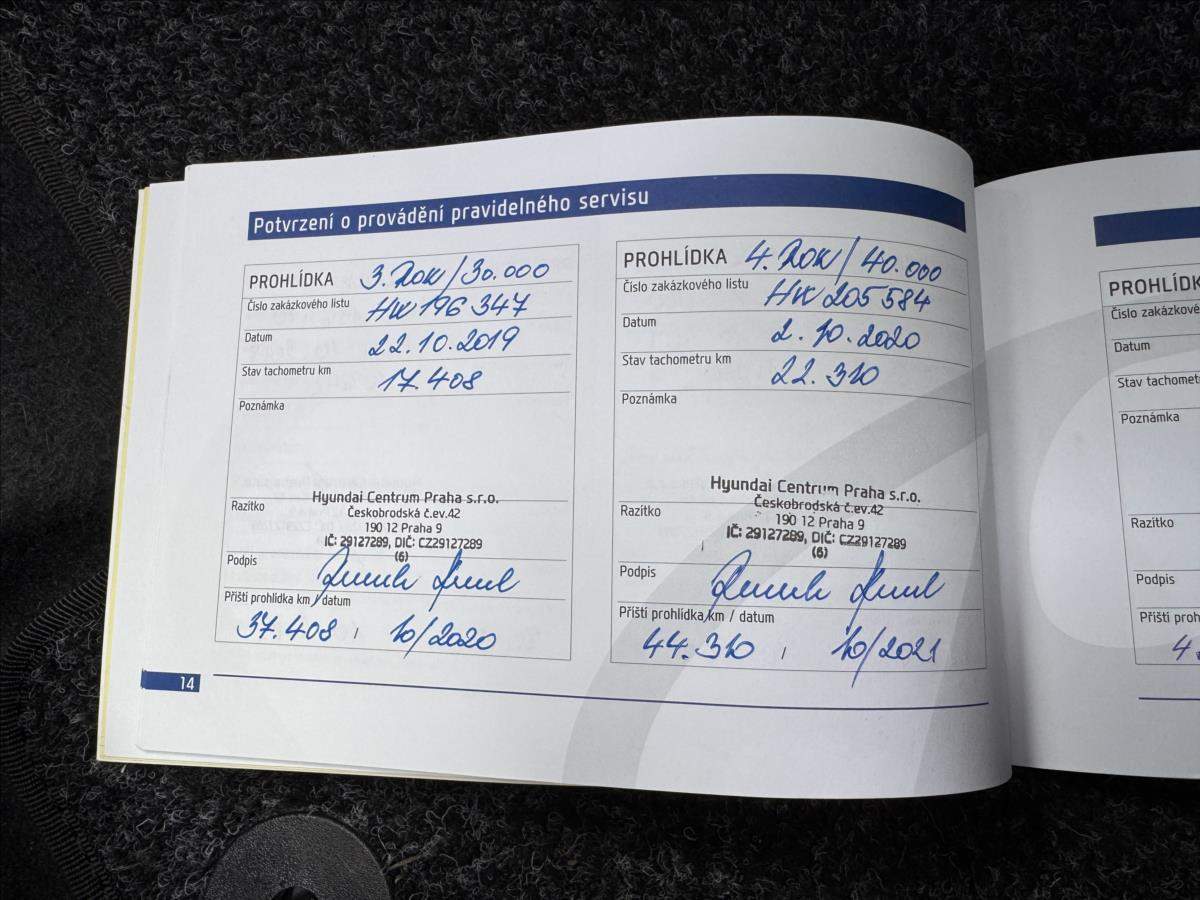 Potvrzení o provádění pravidelného servisu
PROHLÍDKA 3. ROK/30.000
Číslo zakázkového listu HK196 347
Datum 22.10.2019
Stav tachometru km 17.408
Poznámka
Razítko
Hyundai Centrum Praha s.r.o.
Českobrodská č.ev.42
190 12 Praha 9
IČ: 29127289, DIČ: CZ29127289
(6)
Podpis
Příští prohlídka km / datum
37.408 / 10/2020
PROHLÍDKA 4. ROK/40.000
Číslo zakázkového listu HK 205 584
Datum 2.10.2020
Stav tachometru km 22.310
Poznámka
Razítko
Hyundai Centrum Praha s.r.o.
Českobrodská č.ev.42
190 12 Praha 9
IČ: 29127289, DIČ: CZ29127289
(6)
Podpis
Příští prohlídka km / datum
44.310 / 10/2021
14
Datum
Poznámka
Razítko
Podpis